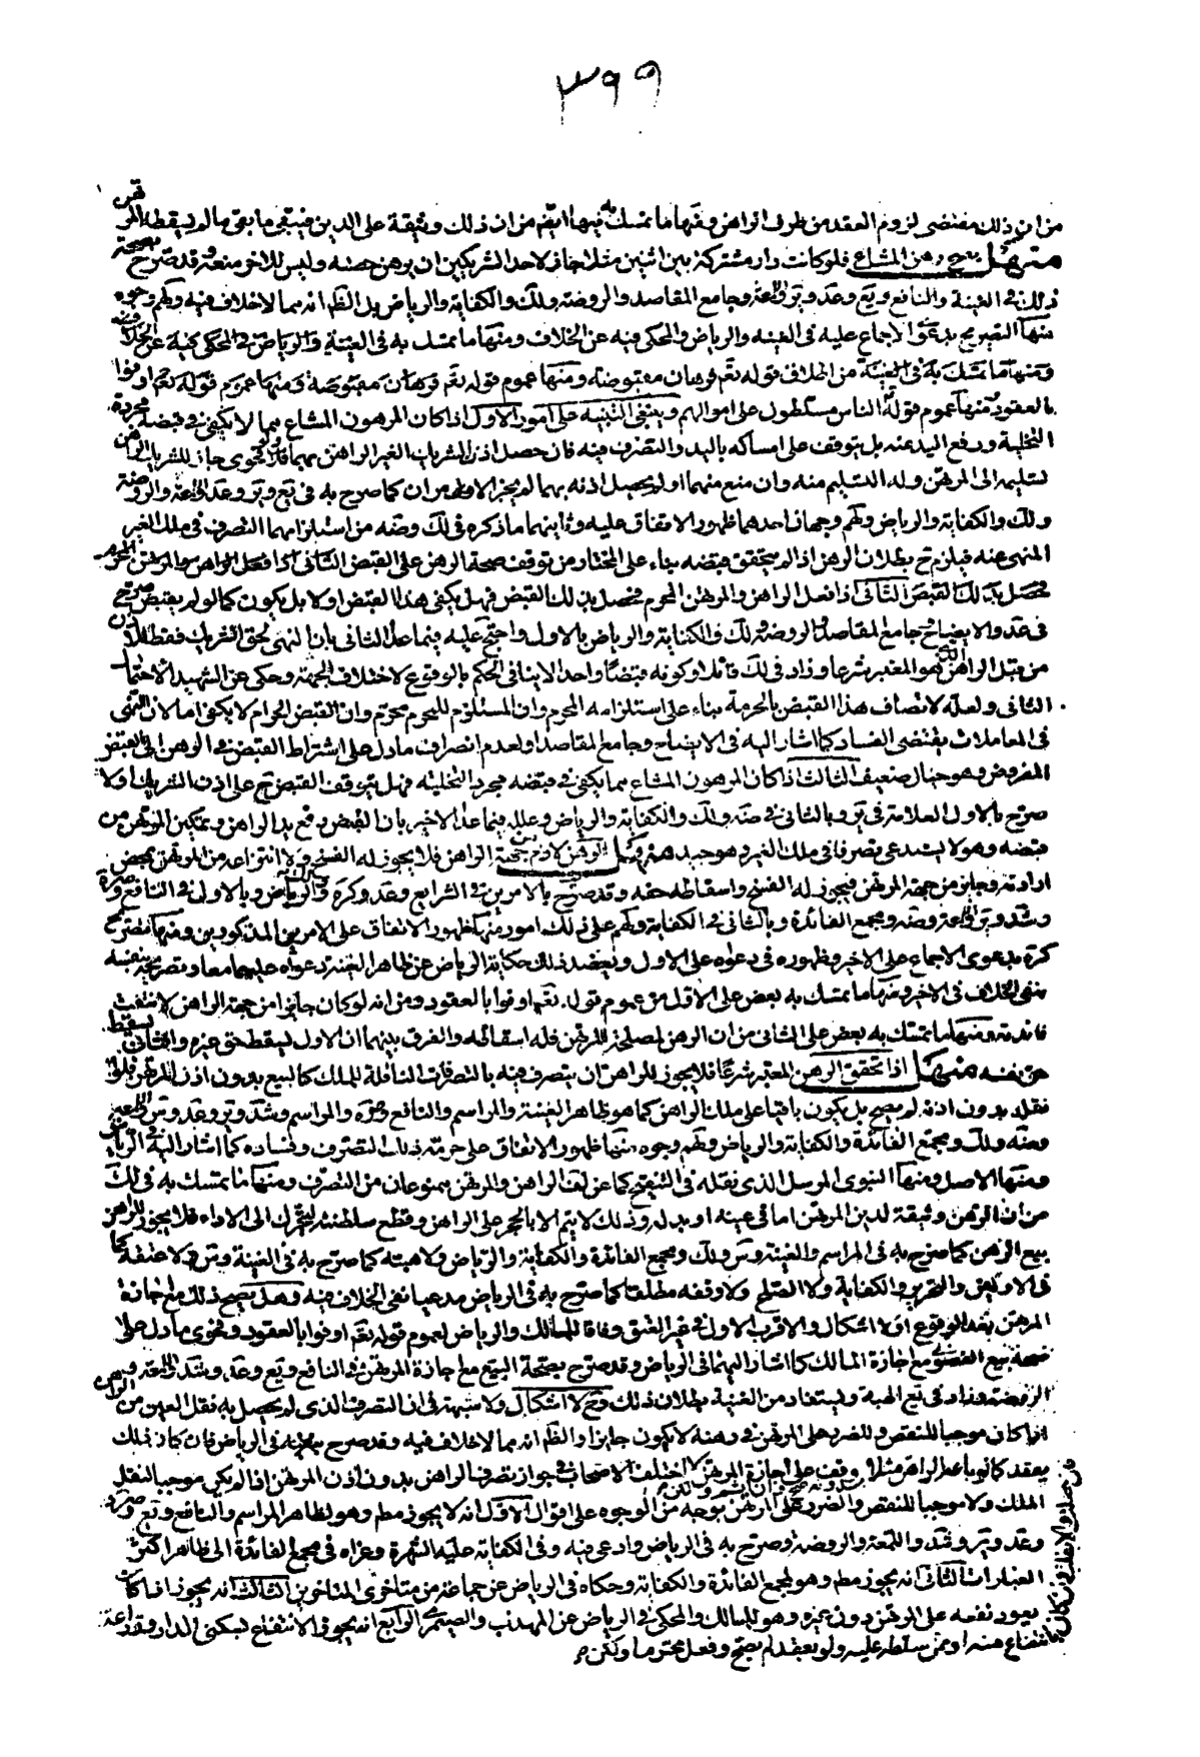 ٣٩٩
من ان ذلك مقتضى لزوم العقد من طرف الراهن ومنها ما تمسك به فيها ايضم من ان ذلك وثيقة على الدين فيبقى ما بقى ما لم يسقطه المرتهن
منهل يصح رهن المشاع فلو كانت دار مشتركة بين اثنين مثلا جاز لاحد الشريكين ان يرهن حصته وليس للاخر منعه وقد صرح بصحة
ذلك فى الغنية والنافع ويع وعد وير واللمعة وجامع المقاصد والروضة ولك والكفاية والرياض بل الظ انه مما لا خلاف فيه ولهم وجوه
منها التصريح بدعوى الاجماع عليه فى الغنية والرياض والمحكى فيه عن الخلاف ومنها ما تمسك به فى الغنية والرياض فى المحكى عن الخلاف
ومنها ما تمسك به فى الغنية من اطلاق قوله تعم فرهان مقبوضة ومنها عموم قوله تعم اوفوا
بالعقود ومنها عموم قوله الناس مسلطون على اموالهم وينبغى التنبيه على امور الاول اذا كان المرهون المشاع مما لا يكفى فى قبضه مجرد
التخلية ورفع اليد عنه بل يتوقف على امساكه باليد والتصرف فيه فان حصل اذن الشريك الغير الراهن بهما جاز للشريك الراهن
تسليمه الى المرتهن وله التسليم منه وان منع منهما او لم يحصل اذنه بهما لم يجز الامران كما صرح به فى يع وير وعد واللمعة والروضة
ولك والكفاية والرياض ولهم وجهان احدهما ظهور الاتفاق عليه وثانيهما ما ذكره فى لك وضه من استلزامهما التصرف فى ملك الغير
المنهى عنه فيلزم ح بطلان الرهن اذا لم يتحقق قبضه بناء على المختار من توقف صحة الرهن على القبض الثانى اذا فعل الراهن والمرتهن المحرم
فحصل بذلك القبض فهل يكفى هذا القبض او لا بل يكون كما لو لم يقبض صرح
فى عد والايضاح وجامع المقاصد والروضة ولك والكفاية والرياض بالاول واحتج عليه فيما عدا الثانى بان النهى لحق الشريك فقط للاذن
من قبل الراهن الذى هو المعتبر شرعا وزاد فى لك قائلا وكونه قبضا واحدا لا ينافى الحكم بالوقوع لاختلاف الجهة وحكى عن الشهيد الاحتمال
الثانى ولعله لاتصاف هذا القبض بالحرمة بناء على استلزامه المحرم وان المستلزم للمحرم محرم وان القبض الحرام لا يكفى اما لان النهى
فى المعاملات يقتضى الفساد كما اشار اليه فى الايضاح وجامع المقاصد او لعدم انصراف ما دل على اشتراط القبض فى الرهن الى القبض
المفروض وهو جيد الثالث اذا كان المرهون المشاع مما يكفى فى قبضه مجرد التخلية فهل يتوقف القبض ح على اذن الشريك او لا
صرح بالاول العلامة فى ير وبالثانى فى ضه ولك والكفاية والرياض وعلله فيما عدا الاخير بان القبض رفع يد الراهن وتمكين المرتهن من
قبضه وهو لا يستدعى تصرفا فى ملك الغير وهو جيد منهل الرهن لازم من جهة الراهن فلا يجوز له الفسخ ولا انتزاعه من المرتهن بمحض
ارادته وجايز من جهة المرتهن فيجوز له الفسخ واسقاط حقه وقد صرح بالامرين فى الشرايع وعد وكره والرياض وبالاول فى النافع وصره
وشد وير واللمعة وضه ومجمع الفائدة وبالثانى فى الكفاية ولهم على ذلك امور منها ظهور الاتفاق على الامرين المذكورين ومنها تصريح
كره بدعوى الاجماع على الاخير وظهوره فى دعواه على الاول ويعضد ذلك حكاية الرياض عن ظاهر الغنية دعواه عليهما معا وتصريحه بنفسه
بنفى الخلاف فى الاخير ومنها ما تمسك به بعض على الاول من عموم قوله تعم اوفوا بالعقود ومن انه لو كان جايزا من جهة الراهن لانتفت
فائدته ومنها ما تمسك به بعض على الثانى من ان الرهن لمصلحة المرتهن فله اسقاطه والفرق بينهما ان الاول يسقط حق غيره والثانى يسقط
حق نفسه منهل اذا تحقق الرهن المعتبر شرعا فلا يجوز للراهن ان يتصرف فيه بالتصرفات الناقلة للملك كالبيع بدون اذن المرتهن فلو
نقله بدون اذنه لم يصح بل يكون باقيا على ملك الراهن كما هو ظاهر الغنية والمراسم والنافع وصره والمراسم وشد وير وعد وس واللمعة
وضه ولك ومجمع الفائدة والكفاية والرياض ولهم وجوه منها ظهور الاتفاق على حرمة ذلك التصرف وفساده كما اشار اليه فى الرياض
ومنها الاصل ومنها النبوى المرسل الذى نقله فى التنقيح كما عن لف الراهن والمرتهن ممنوعان من التصرف ومنها ما تمسك به فى لك
من ان الرهن وثيقة لدين المرتهن اما فى عينه او بدله وذلك لا يتم الا بالحجر على الراهن وقطع سلطنته ليتحرك الى الاداء فلا يجوز للراهن
بيع الرهن كما صرح به فى المراسم والغنية وس ولك ومجمع الفائدة والكفاية والرياض ولا هبته كما صرح به فى الغنية وس ولا عتقه كما
فى الاولين والتحرير والكفاية ولا الصلح ولا وقفه مطلقا كما صرح به فى الرياض مدعيا نفى الخلاف فيه وهل يصح ذلك مع اجازة
المرتهن بعد الوقوع او لا اشكال والاقرب الاول فى غير العتق وفاقا للمسالك والرياض لعموم قوله تعم اوفوا بالعقود وفحوى ما دل على
صحة بيع الفضولى مع اجازة المالك كما اشار اليهما فى الرياض وقد صرح بصحة البيع مع اجازة المرتهن فى النافع ويع وعد وشد واللمعة
الروضة وزاد فى يع الهبة ويستفاد من الغنية بطلان ذلك وح لا اشكال ولا شبهة فى ان التصرف الذى لم يحصل به نقل العين من الراهن
اذا كان موجبا للنقص وللضرر على المرتهن فى رهنه لا يكون جايزا والظ انه مما لا خلاف فيه وقد صرح به فى الرياض فان كان ذلك
بعقد كما لو باعه الراهن مثلا وقف على اجازة المرتهن اختلف الاصحاب فى جواز تصرف الراهن بدون اذن المرتهن اذا لم يكن موجبا لنقل
الملك ولا موجبا للنقص والضرر على المرتهن بوجه من الوجوه على اقوال الاول انه لا يجوز مطم وهو لظاهر المراسم والنافع ويع وصره
وعد وير وشد واللمعة والروضة وصرح به فى الرياض وادعى فيه وفى الكفاية عليه الشهرة وعزاه فى مجمع الفائدة الى ظاهر اكثر
العبارات الثانى انه يجوز مطم وهو لمجمع الفائدة والكفاية وحكاه فى الرياض عن جماعة من متاخرى المتاخرين الثالث انه يجوز اذا كان
يعود نفعه على المرتهن دون غيره وهو للمسالك والمحكى فى الرياض عن المهذب والصيمرى الرابع انه يجوز الانتفاع بسكنى الدار وزراعة
ولو بعقد لم يصح وفعل محترما ولكن